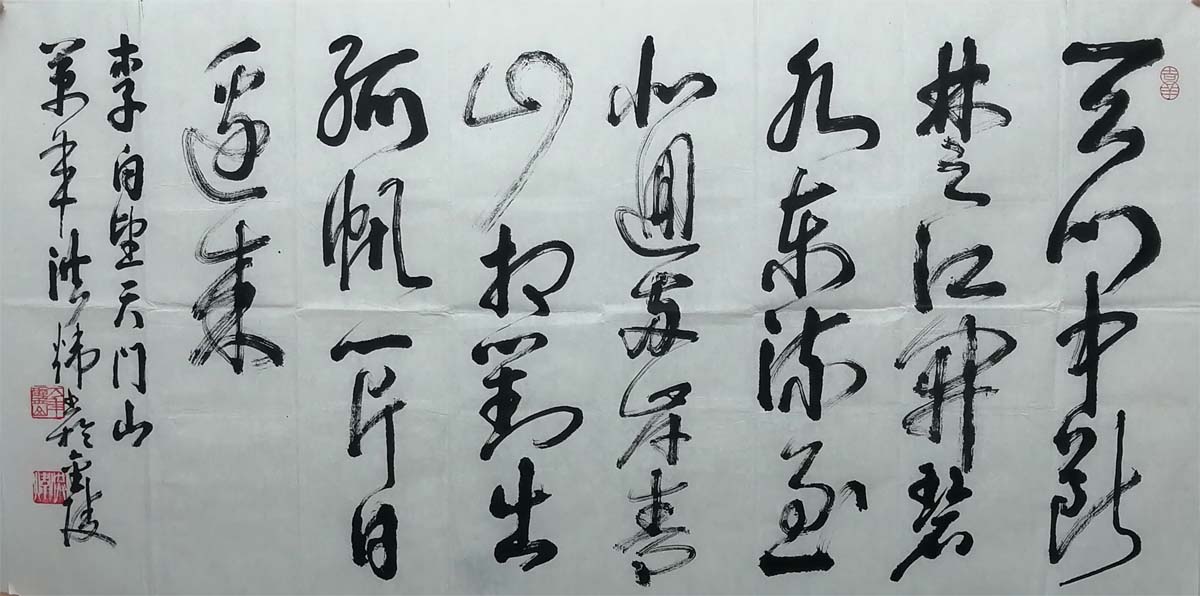 天门中断
楚江开碧
水东流至
此迴两岸青
山相對出
孤帆一片日
边来
李白望天门山
萬年洪煒书於金陵